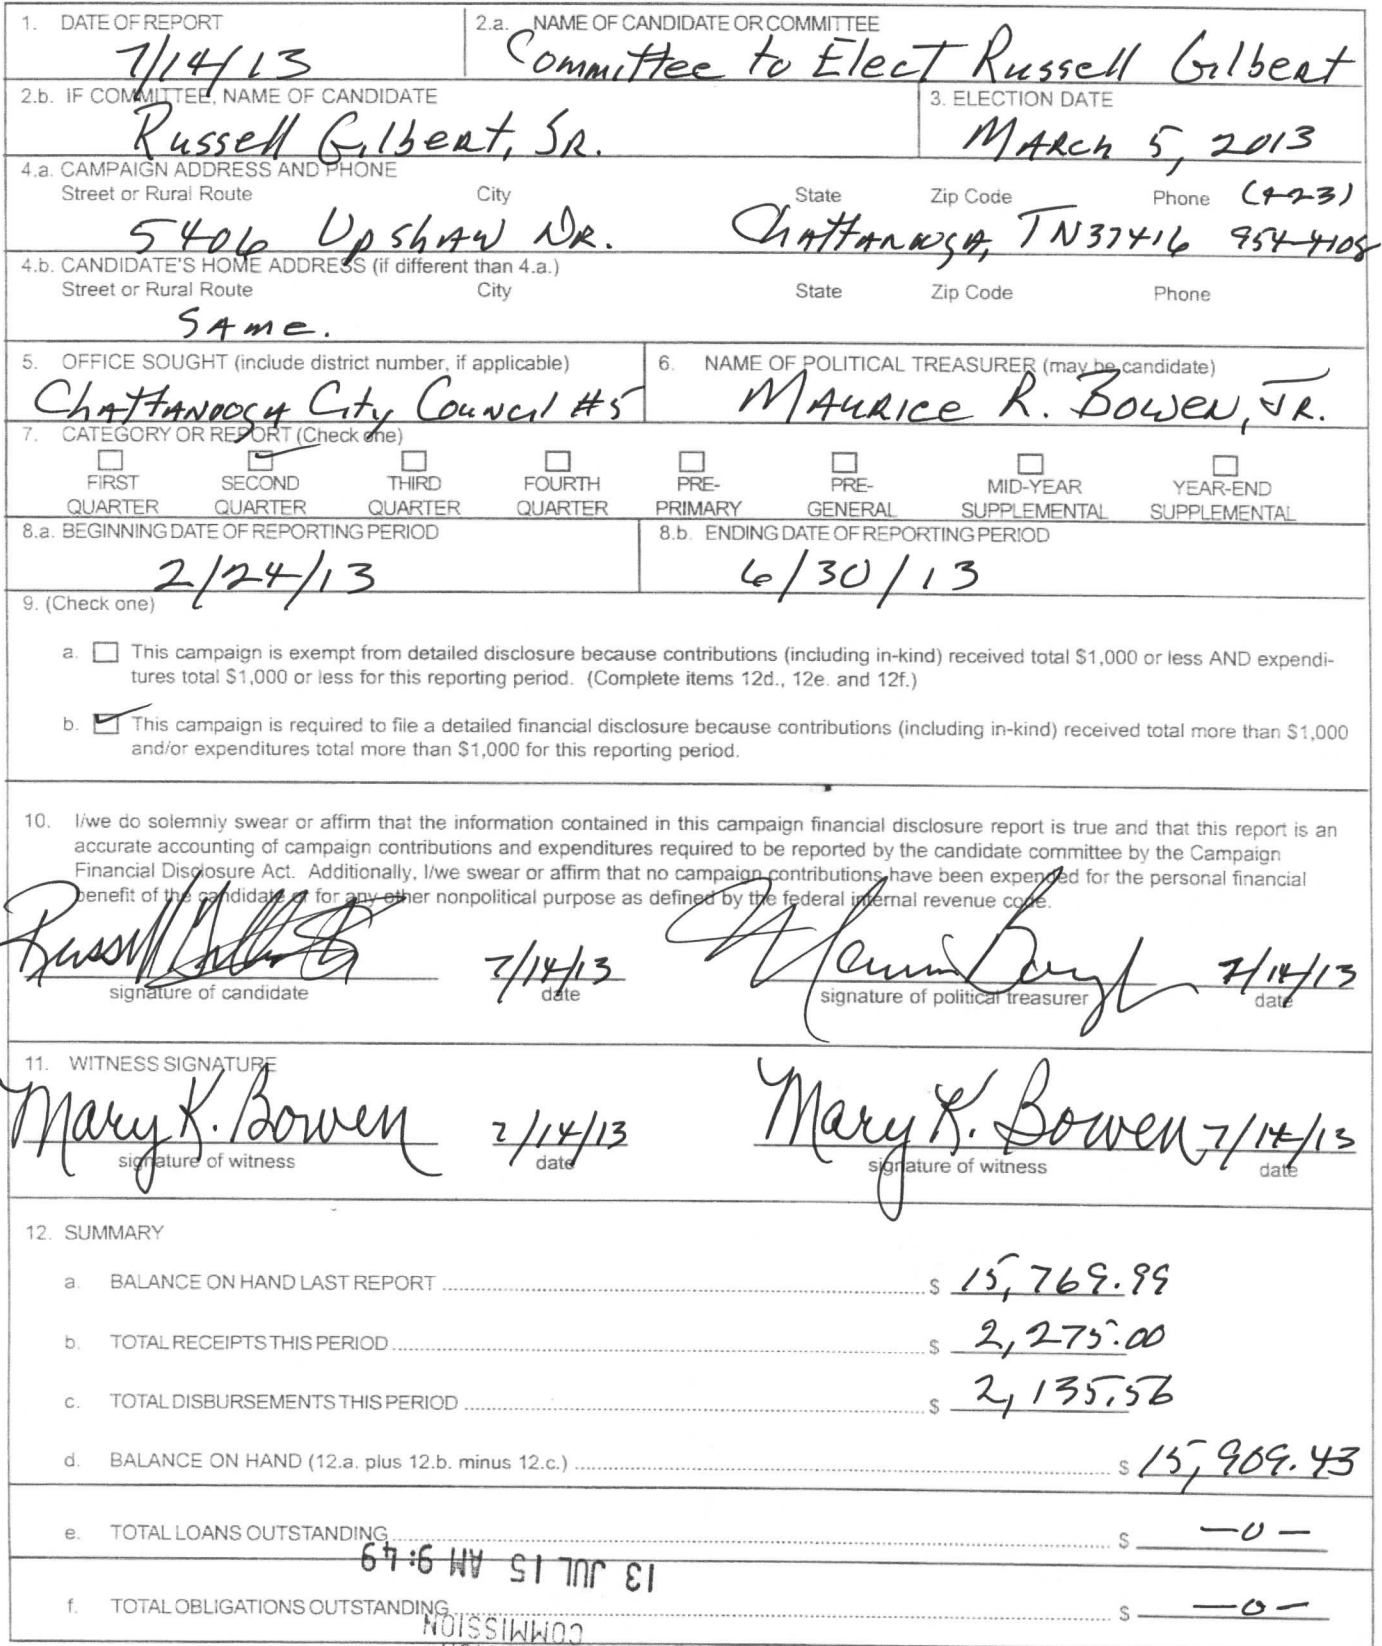 1. DATE OF REPORT
7/14/13
2.a. NAME OF CANDIDATE OR COMMITTEE
Committee to Elect Russell Gilbert
2.b. IF COMMITTEE, NAME OF CANDIDATE
Russell Gilbert, SR.
3. ELECTION DATE
MARCH 5, 2013
4.a. CAMPAIGN ADDRESS AND PHONE
Street or Rural Route City State Zip Code Phone (423)
5406 Upshaw DR. Chattanooga, TN 37416 954-4108
4.b. CANDIDATE'S HOME ADDRESS (if different than 4.a.)
Street or Rural Route City State Zip Code Phone
SAme.
5. OFFICE SOUGHT (include district number, if applicable)
Chattanooga City Council #5
6. NAME OF POLITICAL TREASURER (may be candidate)
MAURICE R. BOWEN, JR.
7. CATEGORY OR REPORT (Check one)
FIRST QUARTER
SECOND QUARTER
THIRD QUARTER
FOURTH QUARTER
PRE-PRIMARY
PRE-GENERAL
MID-YEAR SUPPLEMENTAL
YEAR-END SUPPLEMENTAL
8.a. BEGINNING DATE OF REPORTING PERIOD
2/24/13
8.b. ENDING DATE OF REPORTING PERIOD
6/30/13
9. (Check one)
a. This campaign is exempt from detailed disclosure because contributions (including in-kind) received total $1,000 or less AND expendi-
tures total $1,000 or less for this reporting period. (Complete items 12d., 12e. and 12f.)
b. This campaign is required to file a detailed financial disclosure because contributions (including in-kind) received total more than $1,000
and/or expenditures total more than $1,000 for this reporting period.
10. I/we do solemnly swear or affirm that the information contained in this campaign financial disclosure report is true and that this report is an
accurate accounting of campaign contributions and expenditures required to be reported by the candidate committee by the Campaign
Financial Disclosure Act. Additionally, I/we swear or affirm that no campaign contributions have been expended for the personal financial
benefit of the candidate or for any other nonpolitical purpose as defined by the federal internal revenue code.
Russell 7/14/13 7/14/13
signature of candidate date signature of political treasurer date
11. WITNESS SIGNATURE
Mary K. Bowen 7/14/13 Mary K. Bowen 7/14/13
signature of witness date signature of witness date
12. SUMMARY
a. BALANCE ON HAND LAST REPORT $ 15,769.99
b. TOTAL RECEIPTS THIS PERIOD $ 2,275.00
c. TOTAL DISBURSEMENTS THIS PERIOD $ 2,135.56
d. BALANCE ON HAND (12.a. plus 12.b. minus 12.c.) $ 15,909.43
e. TOTAL LOANS OUTSTANDING $ -0-
13 JUL 15 AM 9:49
f. TOTAL OBLIGATIONS OUTSTANDING $ -0-
COMMISSION